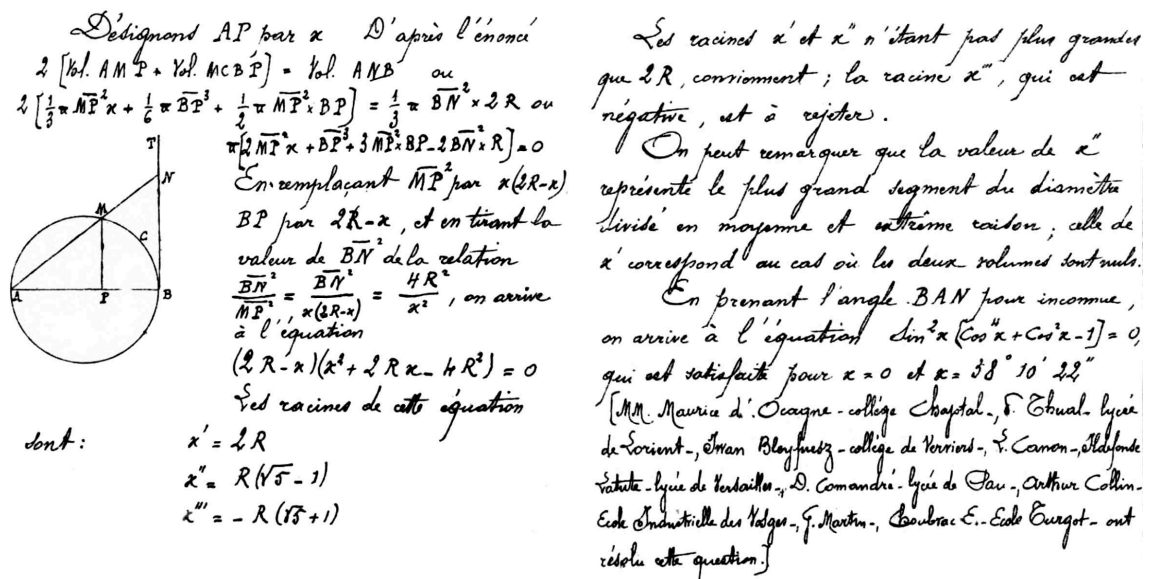 Désignons AP par x D'après l'énoncé
2 [Vol. AMP + Vol. MCBP] = Vol. ANB ou
2 [1/3 π MP̅² x + 1/6 π BP̅³ + 1/2 π MP̅² × BP] = 1/3 π BN̅² × 2R ou
π[2MP̅² x + BP̅³ + 3MP̅² × BP - 2BN̅² × R] = 0
T
N
M
C
A
P
B
En remplaçant MP̅² par x(2R-x)
BP par 2R-x, et en tirant la
valeur de BN̅² de la relation
BN̅²/MP̅² = BN̅²/x(2R-x) = 4R²/x², on arrive
à l'équation
(2R-x)(x²+2Rx-4R²) = 0
Les racines de cette équation
sont: x' = 2R
x'' = R(√5-1)
x''' = -R(√5+1)
Les racines x' et x'' n'étant pas plus grandes
que 2R, conviennent; la racine x''', qui est
négative, est à rejeter.
On peut remarquer que la valeur de x''
représente le plus grand segment du diamètre
divisé en moyenne et extrême raison; celle de
x' correspond au cas où les deux volumes sont nuls.
En prenant l'angle BAN pour inconnue,
on arrive à l'équation Sin²x [Cos⁴x + Cos²x - 1] = 0,
qui est satisfaite pour x = 0 et x = 38° 10' 22''
[MM. Maurice d'Ocagne - collège Chaptal -, F. Thual - lycée
de Lorient -, Iwan Bleyfuesz - collège de Verviers -, L. Canon -, Ildefonse
Latute - lycée de Versailles -, D. Comandré - lycée de Pau -, Arthur Collin -
Ecole Industrielle des Vosges -, G. Martin -, Boubrac E. - Ecole Turgot - ont
résolu cette question.]